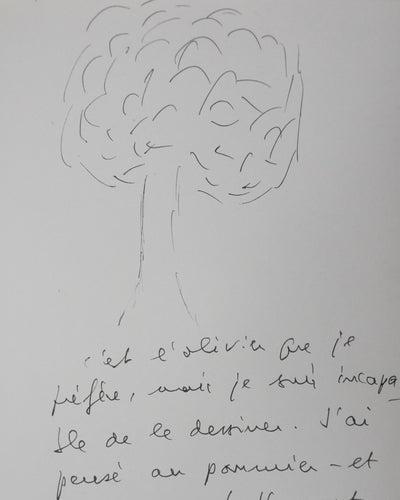 c'est l'olivier que je
préfère, mais je suis incapa-
ble de le dessiner. J'ai
pensé au pommier - et